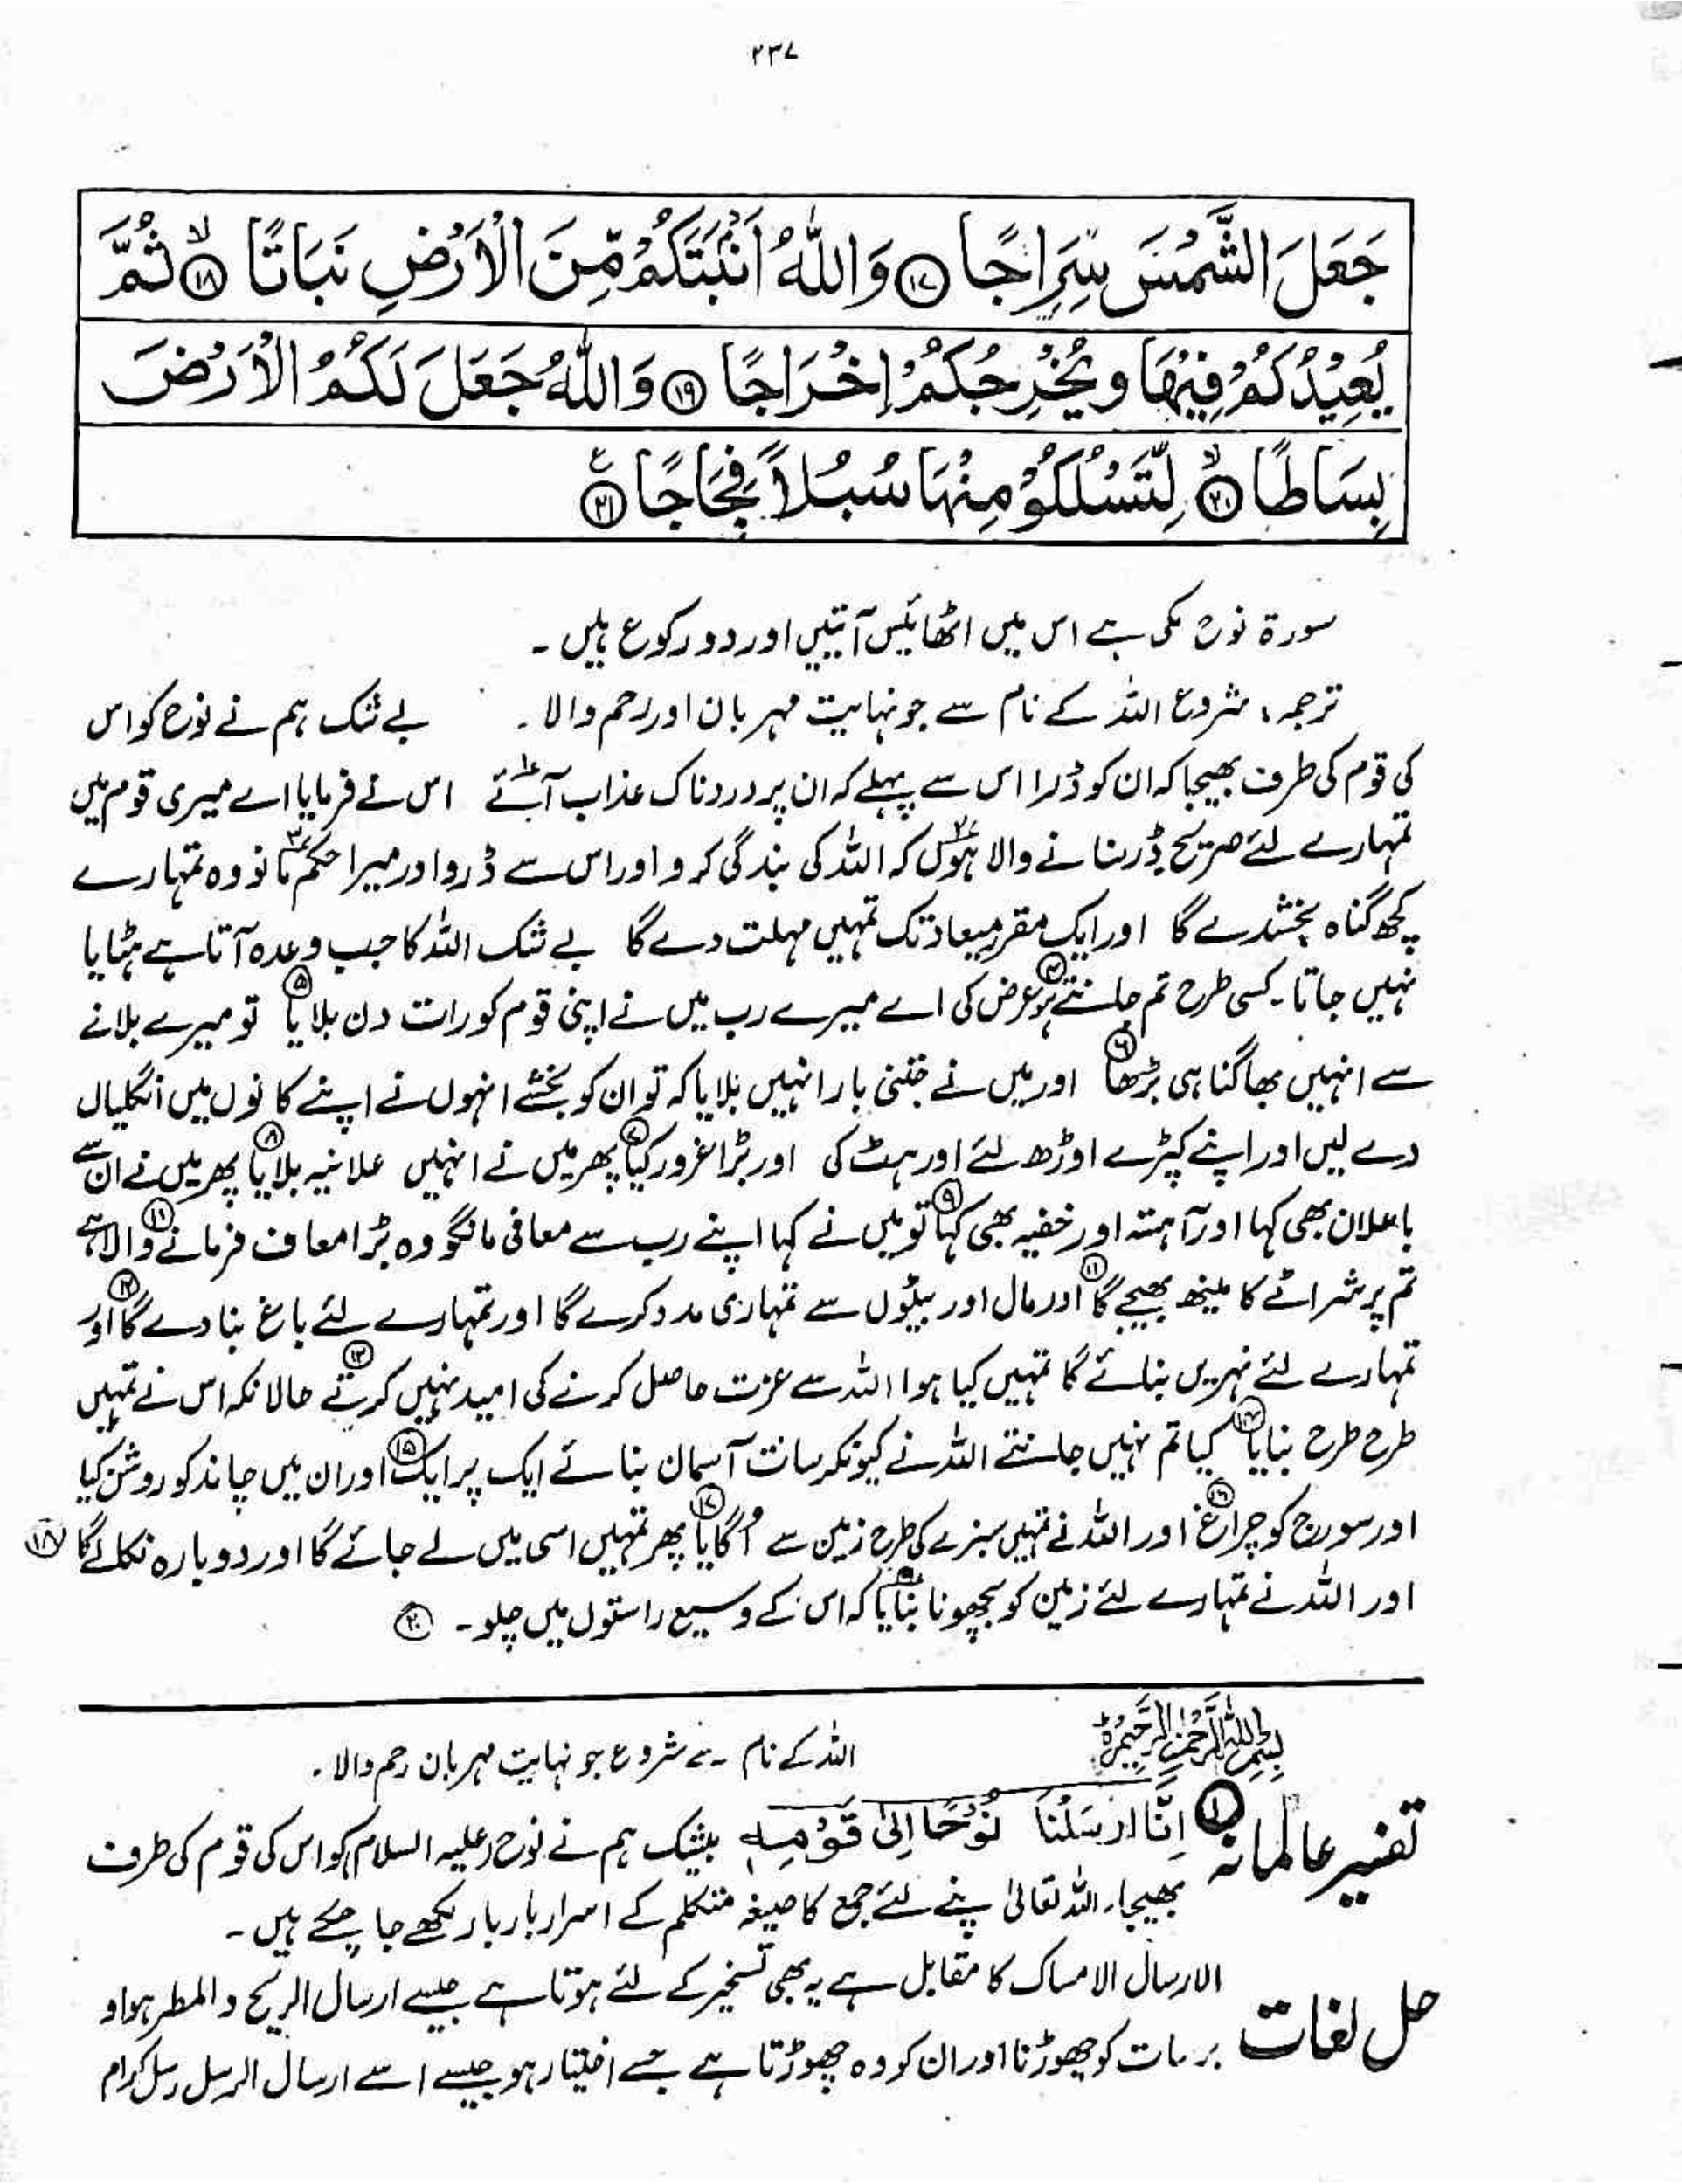 ۲۳۷
جَعَلَ الشَّمْسَ سِرَاجًا ⑰ وَاللّٰهُ اَنْۢبَتَكُمْ مِّنَ الْاَرْضِ نَبَاتًا ۙ⑱ ثُمَّ
يُعِيْدُكُمْ فِيْهَا وَيُخْرِجُكُمْ اِخْرَاجًا ⑲ وَاللّٰهُ جَعَلَ لَكُمُ الْاَرْضَ
بِسَاطًا ۙ⑳ لِّتَسْلُكُوْ مِنْهَا سُبُلًا فِجَاجًا ۧ㉑
سورۃ نوح مکی ہے اس میں اٹھائیس آیتیں اور دو رکوع ہیں ۔
ترجمہ: شروع اللہ کے نام سے جو نہایت مہربان اور رحم والا ۔ بے شک ہم نے نوح کو اس
کی قوم کی طرف بھیجا کہ ان کو ڈرا اس سے پہلے کہ ان پر دردناک عذاب آئے اس نے فرمایا اے میری قوم میں
تمہارے لئے صریح ڈر سنانے والا ہوں کہ اللہ کی بندگی کرو اور اس سے ڈرو اور میرا حکم مانو وہ تمہارے
کچھ گناہ بخشدے گا اور ایک مقرر میعاد تک تمہیں مہلت دے گا بے شک اللہ کا جب وعدہ آتا ہے ہٹایا
نہیں جاتا۔ کسی طرح تم جانتے ہو ④ عرض کی اے میرے رب میں نے اپنی قوم کو رات دن بلایا ⑤ تو میرے بلانے
سے انہیں بھاگنا ہی بڑھا ⑥ اور میں نے جتنی بار انہیں بلایا کہ تو ان کو بخشے انہوں نے اپنے کانوں میں انگلیاں
دے لیں اور اپنے کپڑے اوڑھ لئے اور ہٹ کی اور بڑا غرور کیا ⑦ پھر میں نے انہیں علانیہ بلایا ⑧ پھر میں نے ان سے
باعلان بھی کہا اور آہستہ اور خفیہ بھی کہا ⑨ تو میں نے کہا اپنے رب سے معافی مانگو وہ بڑا معاف فرمانے والا ہے ⑪
تم پر شراٹے کا مینھ بھیجے گا ⑪ اور مال اور بیٹوں سے تمہاری مدد کرے گا اور تمہارے لئے باغ بنا دے گا ⑫ اور
تمہارے لئے نہریں بنائے گا تمہیں کیا ہوا اللہ سے عزت حاصل کرنے کی امید نہیں کرتے ⑬ حالانکہ اس نے تمہیں
طرح طرح بنایا ⑭ کیا تم نہیں جانتے اللہ نے کیونکر سات آسمان بنائے ایک پر ایک ⑮ اور ان میں چاند کو روشن کیا
اور سورج کو چراغ ⑯ اور اللہ نے تمہیں سبزے کی طرح زمین سے اُگایا ⑰ پھر تمہیں اسی میں لے جائے گا اور دوبارہ نکالے گا ⑱
اور اللہ نے تمہارے لئے زمین کو بچھونا بنایا کہ اس کے وسیع راستوں میں چلو ۔ ⑳
بِسْمِ اللّٰهِ الرَّحْمٰنِ الرَّحِيْمِ اللہ کے نام سے شروع جو نہایت مہربان رحم والا ۔
تفسیر عالمانہ ① اِنَّا اَرْسَلْنَا نُوْحًا اِلٰى قَوْمِهٖ بیشک ہم نے نوح (علیہ السلام) کو اس کی قوم کی طرف
بھیجا۔ اللہ تعالیٰ پنے لئے جمع کا صیغہ متکلم کے اسرار بار بار لکھے جا چکے ہیں ۔
حل لغات الارسال الامساک کا مقابل ہے یہ بھی تسخیر کے لئے ہوتا ہے جیسے ارسال الریح والمطر ہوا و
برسات کو چھوڑنا اور ان کو وہ چھوڑتا ہے جسے اختیار ہو جیسے اسے ارسال الرسل رسل کرام